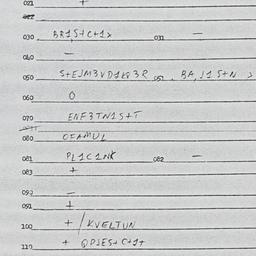 021 +
022
030 BR1S+C+1x 031 —
040 —
050 S+EJM3VD1K83R 051 BA,J1S+N
060 O
070 ENF3TN1S+T
080 OFAMUL
081 PL1C1NK 082 —
083 +
090 —
091 +
100 + /KVELTUN
110 + QPJES+C+1+